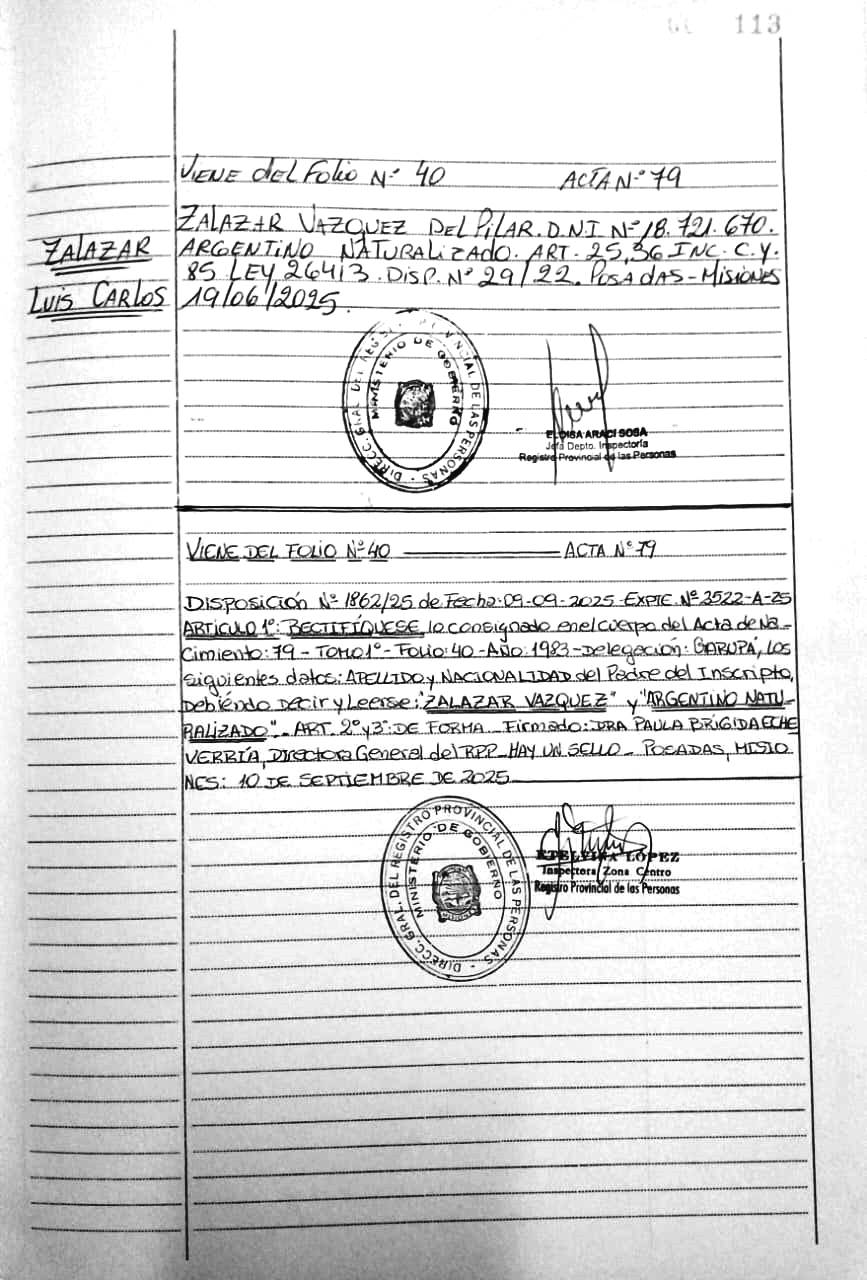 113
VIENE del Folio Nº 40 ACTA Nº 79
ZALAZAR
LUIS CARLOS
ZALAZAR VAZQUEZ DEL PILAR. D.N.I Nº 18.721.670.
ARGENTINO NATURALIZADO. ART. 25,36 INC. C.Y.
85 LEY 26413. DISP. Nº 29/22. POSADAS-MISIONES
19/06/2025.
DIRECC. GRAL. DEL REGISTRO PROVINCIAL DE LAS PERSONAS
MINISTERIO DE GOBIERNO
ELOISA ARACI SOSA
Jefa Depto. Inspectoría
Registro Provincial de las Personas
VIENE DEL FOLIO Nº 40 ACTA Nº 79
DISPOSICIÓN Nº 1862/25 de Fecha: 09-09-2025-EXPTE. Nº 3522-A-25
ARTICULO 1º: RECTIFÍQUESE, lo consignado en el cuerpo del Acta de Na-
cimiento: 79 - TOMO 1º - Folio: 40 - AÑO: 1983 - Delegación: GARUPÁ, LOS
siguientes datos: APELLIDO y NACIONALIDAD del Padre del Inscripto,
Debiéndo Decir y Leerse: "ZALAZAR VAZQUEZ" y "ARGENTINO NATU-
RALIZADO". ART. 2º y 3º: DE FORMA. Firmado: DRA PAULA BRIGIDA ECHE
VERRÍA, Directora General del RPP - HAY UN SELLO - POSADAS, MISIO
NES: 10 DE SEPTIEMBRE DE 2025
DIRECC. GRAL. DEL REGISTRO PROVINCIAL DE LAS PERSONAS
MINISTERIO DE GOBIERNO
ETELVINA LÓPEZ
Inspectora Zona Centro
Registro Provincial de las Personas